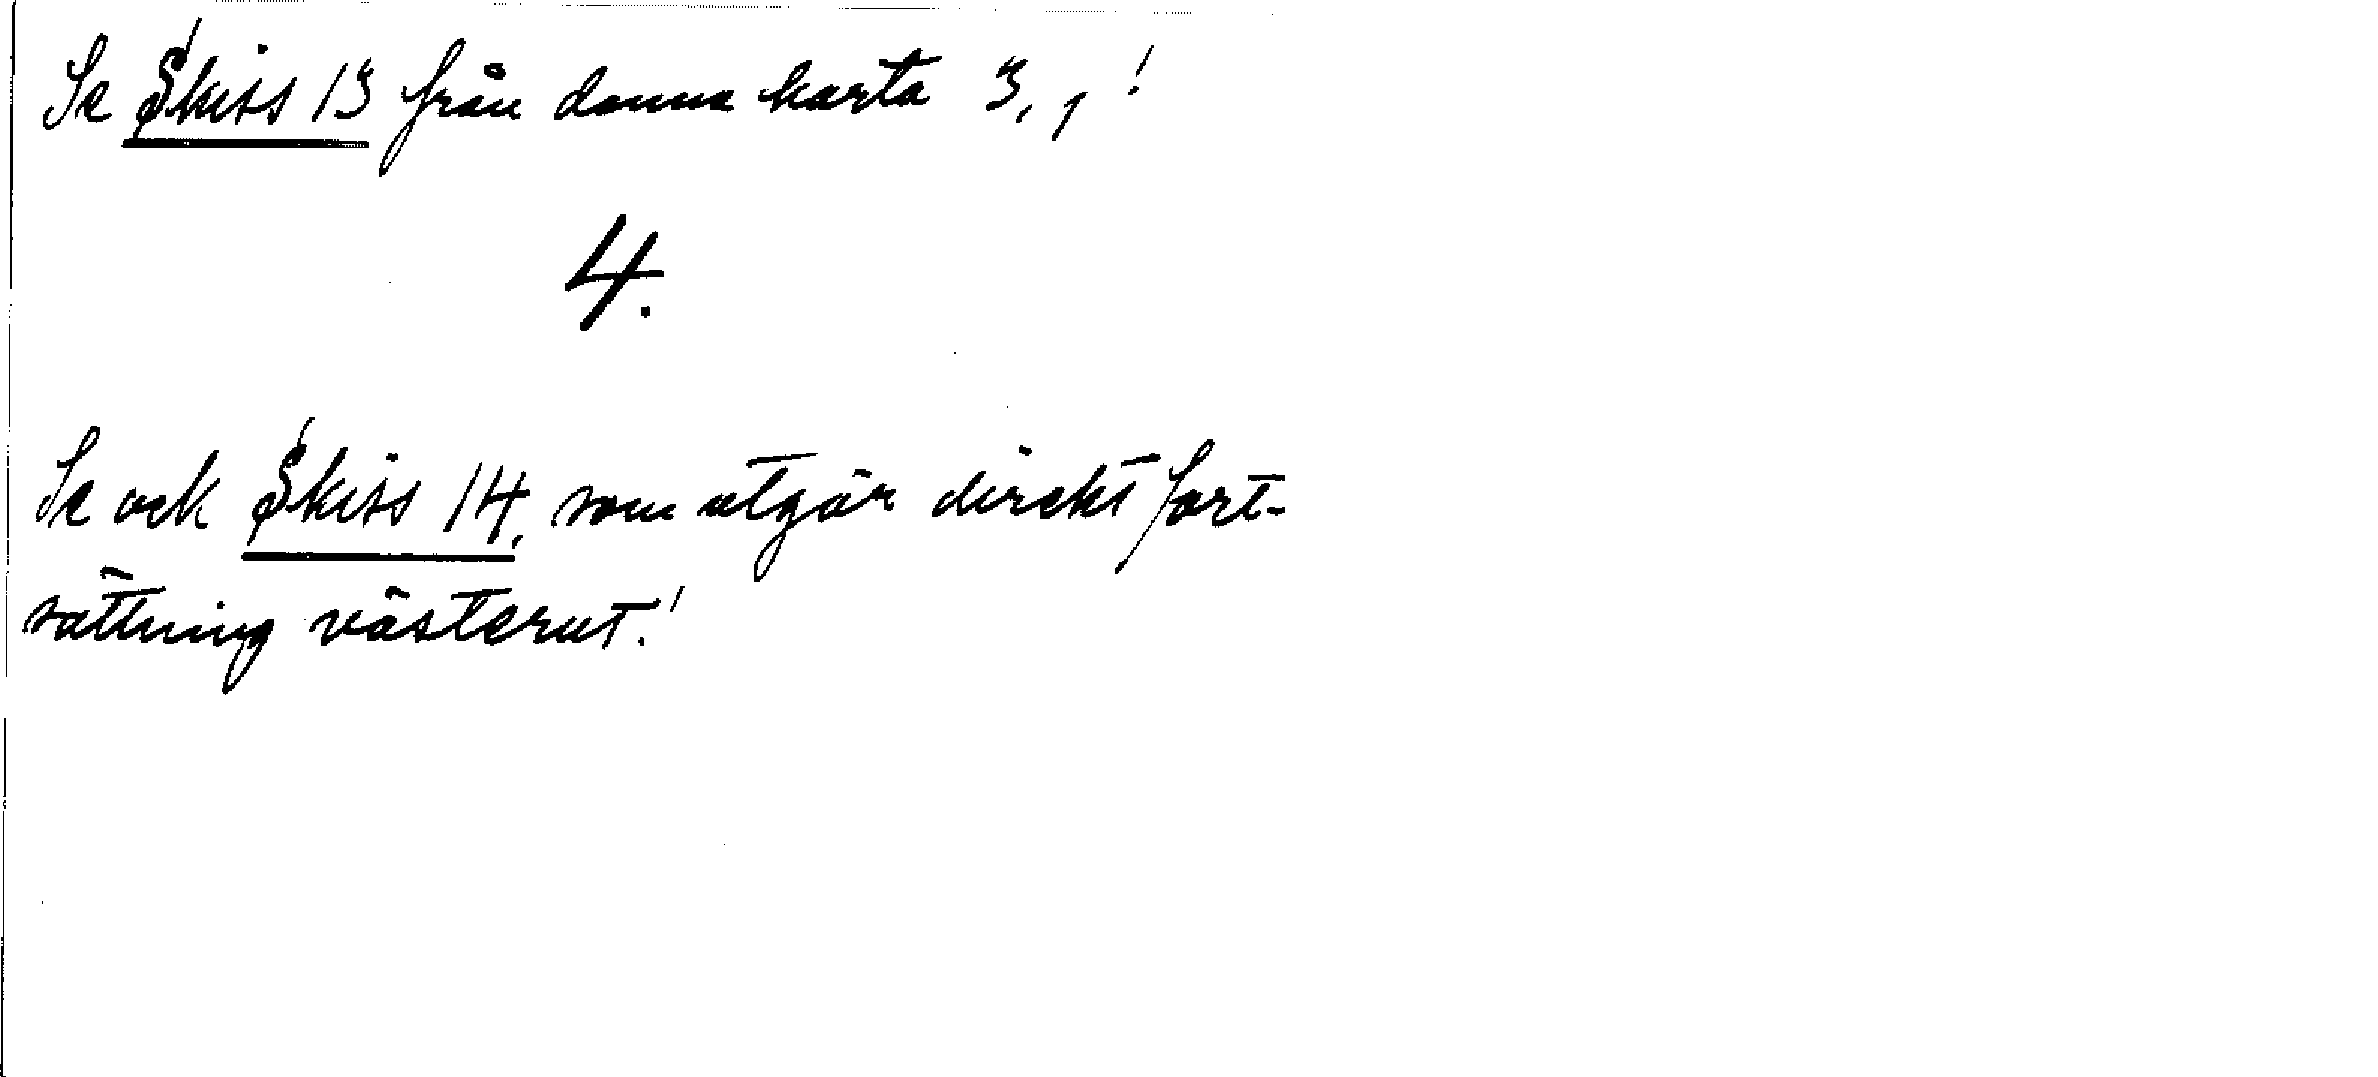 Se Skiss 13 från denna karta 3, 1!
4.
Se ock Skiss 14, som utgör direkt fort-
sättning västerut!